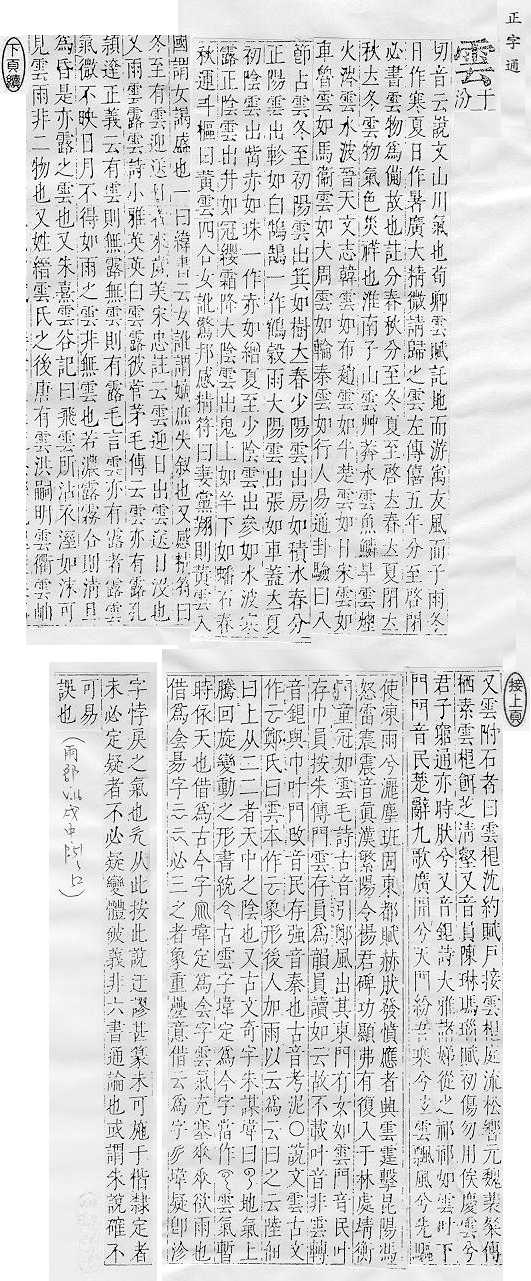 正字通
雲
于汾
切音云說文山川氣也荀卿雲賦託地而游寓友風而子雨冬
日作寒夏日作暑廣大精微請歸之雲左傳僖五年分至啓閉
必書雲物爲備故也註分春秋分至冬夏至啓立春立夏閉立
秋立冬雲物氣色災祥也淮南子山雲艸莽水雲魚鱗旱雲煙
火涔雲水波晉天文志韓雲如布趙雲如牛楚雲如日宋雲如
車魯雲如馬衞雲如犬周雲如輪秦雲如行人易通卦驗曰八
節占雲冬至初陽雲出箕如樹木春少陽雲出房如積水春分
正陽雲出軫如白鵠鵠一作鶴穀雨大陽雲出張如車蓋立夏
初陰雲出觜赤如珠一作赤如繒夏至少陰雲出參如水波寒
露正陰雲出井如冠纓霜降大陰雲出鬼上如羊下如蟠石春
秋運斗樞曰黃雲四合女訛驚邦感精符曰妻黨翔則黃雲入
國謂女謁盛也一曰緯書云女訛謂嫡庶失敘也又感精符曰
冬至有雲迎送日者來歲美宋忠註云雲迎日出雲送日没也
又雨雲露雲詩小雅英英白雲露彼菅茅毛傳云雲亦有露孔
穎達正義云有雲則無露無雲則有露毛言雲亦有露者露雲
氣微不映日月不得如雨之雲非無雲也若濃露霧合則清旦
爲昏是亦露之雲也又朱熹雲谷記曰飛雲所沾衣溼如沐可
見雲雨非二物也又姓縉雲氏之後唐有雲洪嗣明雲衢雲岫
下頁續
接上頁
又雲附石者曰雲根沈約賦戸接雲根庭流松響元魏裴粲傳
栖素雲根餌芝清壑又音員陳琳瑪瑙賦初傷勿用俟慶雲兮
君子窮通亦時狀兮又音銀詩大雅諸娣從之祁祁如雲叶下
門門音民楚辭九歌廣開兮天門紛吾乘兮玄雲飄風兮先驅
使凍雨兮灑塵班固東都賦赫狀發憤應者興雲霆擊昆陽馮
怒雷震震音眞漢繁陽令楊君碑功顯弗有復入于林處靖衡
門童冠如雲毛詩古音引鄭風出其東門有女如雲門音民叶
存巾員按朱傳門雲存員爲韻員讀如云故不載叶音非雲轉
音銀與巾叶門攺音民存強音秦也古音考泥〇說文雲古文
作云鄭氏曰雲本作云象形後人加雨以云爲云曰之云陸佃
曰上从二二者天中之陰也又古文奇字朱謀㙔曰地氣上
騰回旋變動之形書統今古雲字㙔定爲今字當作雲氣暫
時依天也借爲古今字㙔定爲侌字雲氣充塞乘乘欲雨也
借爲侌昜字云云必三之者象重疊意借云爲字㙔疑卽沴
字悖戾之氣也先从此按此說迂謬甚篆未可施于楷隸定者
未必定疑者不必疑變體破義非六書通論也或謂朱說確不
可易
誤也